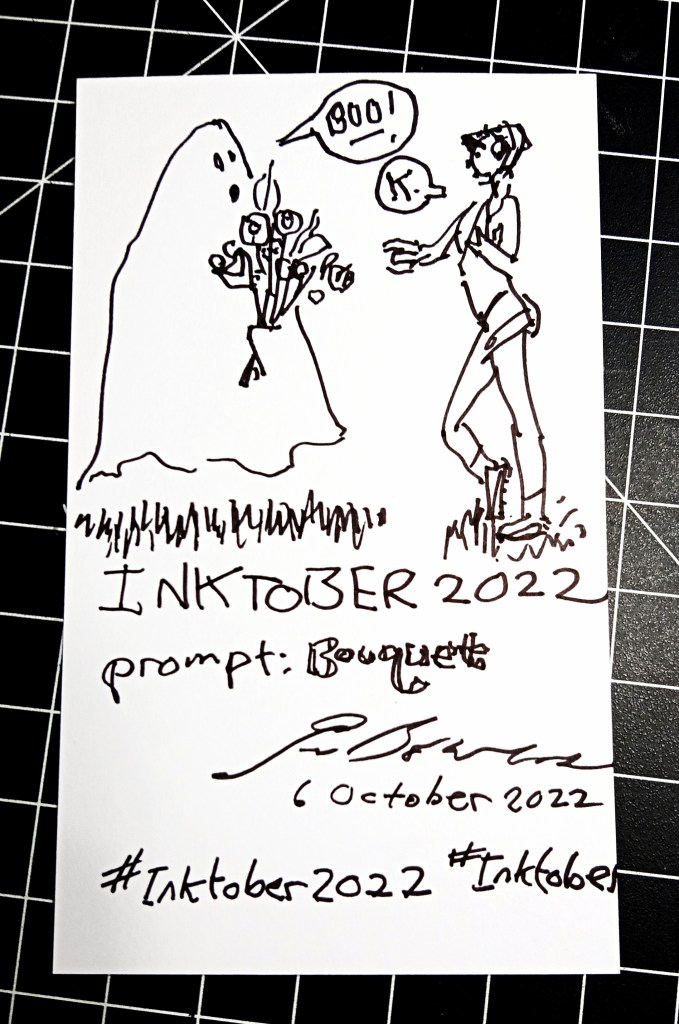 BOO!
K.
INKTOBER 2022
prompt: Bouquet
6 October 2022
#Inktober2022 #Inktober